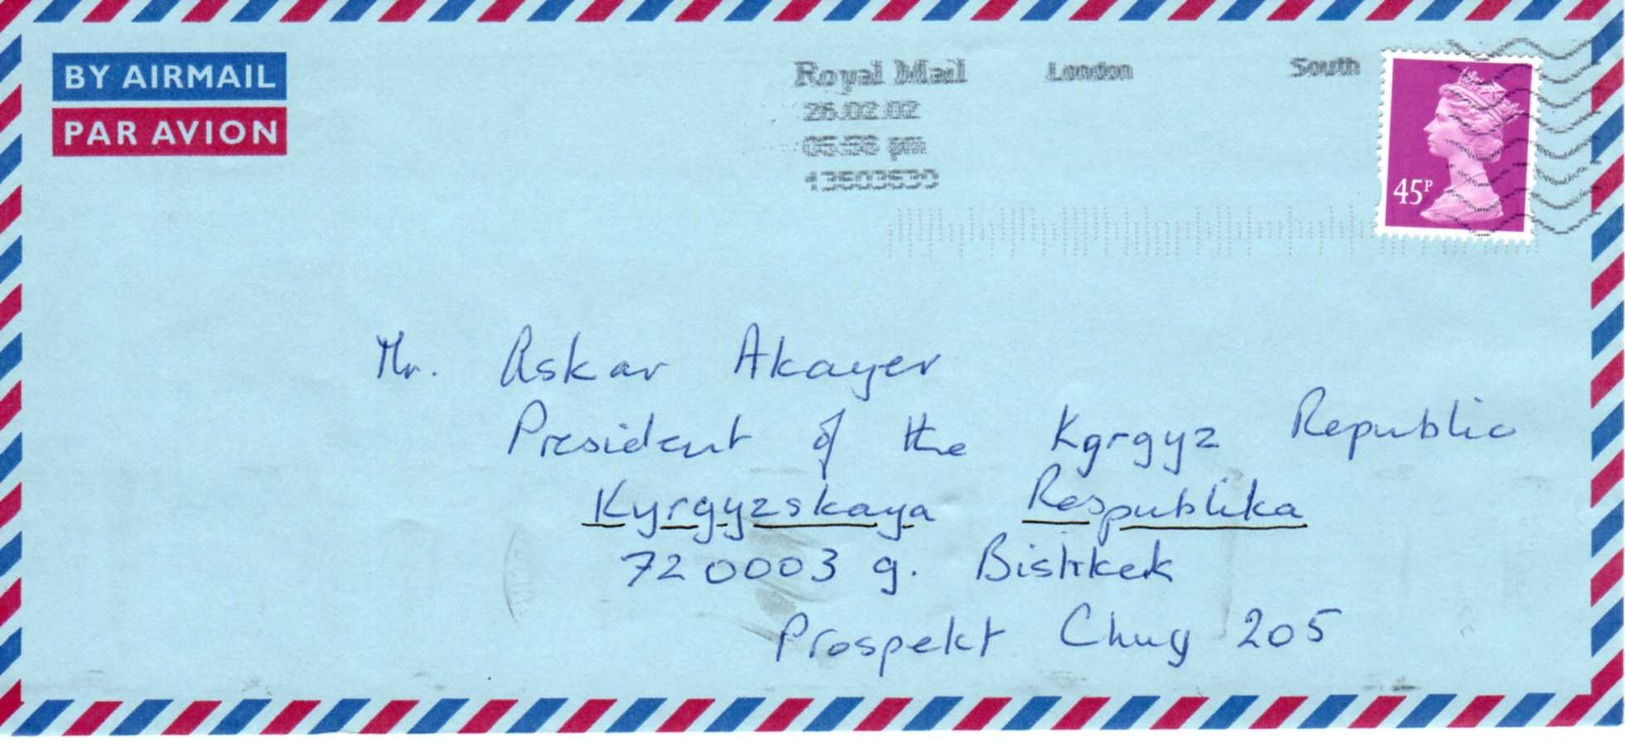 BY AIRMAIL
PAR AVION
Royal Mail London South
26.02.02
pm
45P
Mr. Askar Akayev
President of the Kyrgyz Republic
Kyrgyzskaya Respublika
720003 g. Bishkek
Prospekt Chuy 205